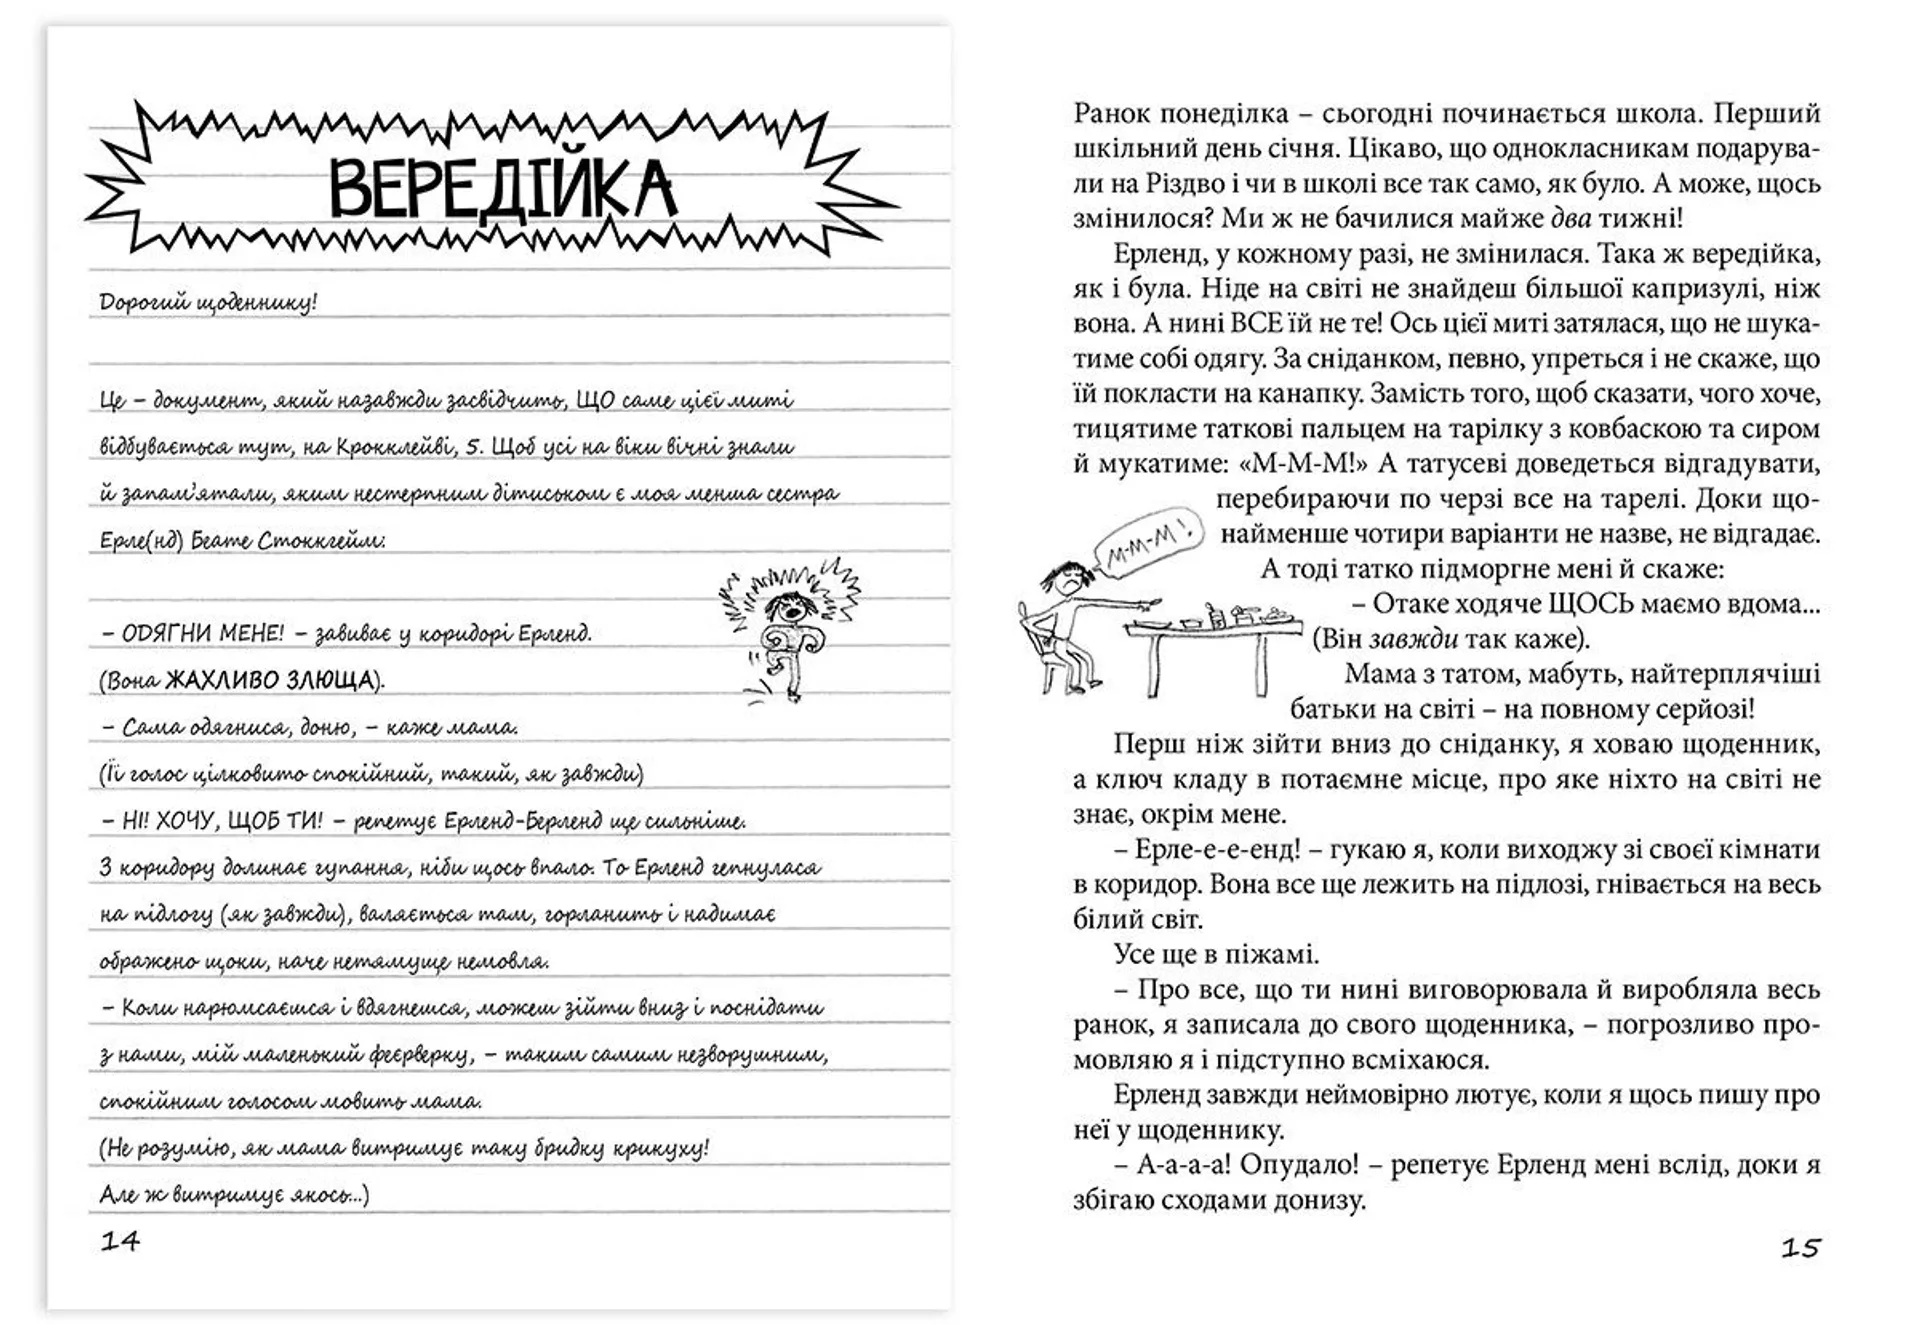 ВЕРЕДІЙКА
Дорогий щоденнику!
Це – документ, який назавжди засвідчить, ЩО саме цієї миті
відбувається тут, на Крокклейві, 5. Щоб усі на віки вічні знали
й запам'ятали, яким нестерпним дітиськом є моя менша сестра
Ерле(нд) Беате Стоккгейм:
– ОДЯГНИ МЕНЕ! – завиває у коридорі Ерленд.
(Вона ЖАХЛИВО ЗЛЮЩА).
– Сама одягнися, доню, – каже мама.
(Її голос цілковито спокійний, такий, як завжди)
– НІ! ХОЧУ, ЩОБ ТИ! – репетує Ерленд-Берленд ще сильніше.
З коридору долинає гупання, ніби щось впало. То Ерленд гепнулася
на підлогу (як завжди), валяється там, горланить і надимає
ображено щоки, наче нетямуще немовля.
– Коли нарюмсаєшся і вдягнешся, можеш зійти вниз і поснідати
з нами, мій маленький феєрверку, – таким самим незворушним,
спокійним голосом мовить мама.
(Не розумію, як мама витримує таку бридку крикуху!
Але ж витримує якось...)
14
Ранок понеділка – сьогодні починається школа. Перший
шкільний день січня. Цікаво, що однокласникам подарува-
ли на Різдво і чи в школі все так само, як було. А може, щось
змінилося? Ми ж не бачилися майже два тижні!
Ерленд, у кожному разі, не змінилася. Така ж вередійка,
як і була. Ніде на світі не знайдеш більшої капризулі, ніж
вона. А нині ВСЕ їй не те! Ось цієї миті затялася, що не шука-
тиме собі одягу. За сніданком, певно, упреться і не скаже, що
їй покласти на канапку. Замість того, щоб сказати, чого хоче,
тицятиме таткові пальцем на тарілку з ковбаскою та сиром
й мукатиме: «М-М-М!» А татусеві доведеться відгадувати,
перебираючи по черзі все на тарелі. Доки що-
найменше чотири варіанти не назве, не відгадає.
М-М-М!
А тоді татко підморгне мені й скаже:
– Отаке ходяче ЩОСЬ маємо вдома...
(Він завжди так каже).
Мама з татом, мабуть, найтерплячіші
батьки на світі – на повному серйозі!
Перш ніж зійти вниз до сніданку, я ховаю щоденник,
а ключ кладу в потаємне місце, про яке ніхто на світі не
знає, окрім мене.
– Ерле-е-е-енд! – гукаю я, коли виходжу зі своєї кімнати
в коридор. Вона все ще лежить на підлозі, гнівається на весь
білий світ.
Усе ще в піжамі.
– Про все, що ти нині виговорювала й виробляла весь
ранок, я записала до свого щоденника, – погрозливо про-
мовляю я і підступно всміхаюся.
Ерленд завжди неймовірно лютує, коли я щось пишу про
неї у щоденнику.
– А-а-а-а! Опудало! – репетує Ерленд мені вслід, доки я
збігаю сходами донизу.
15